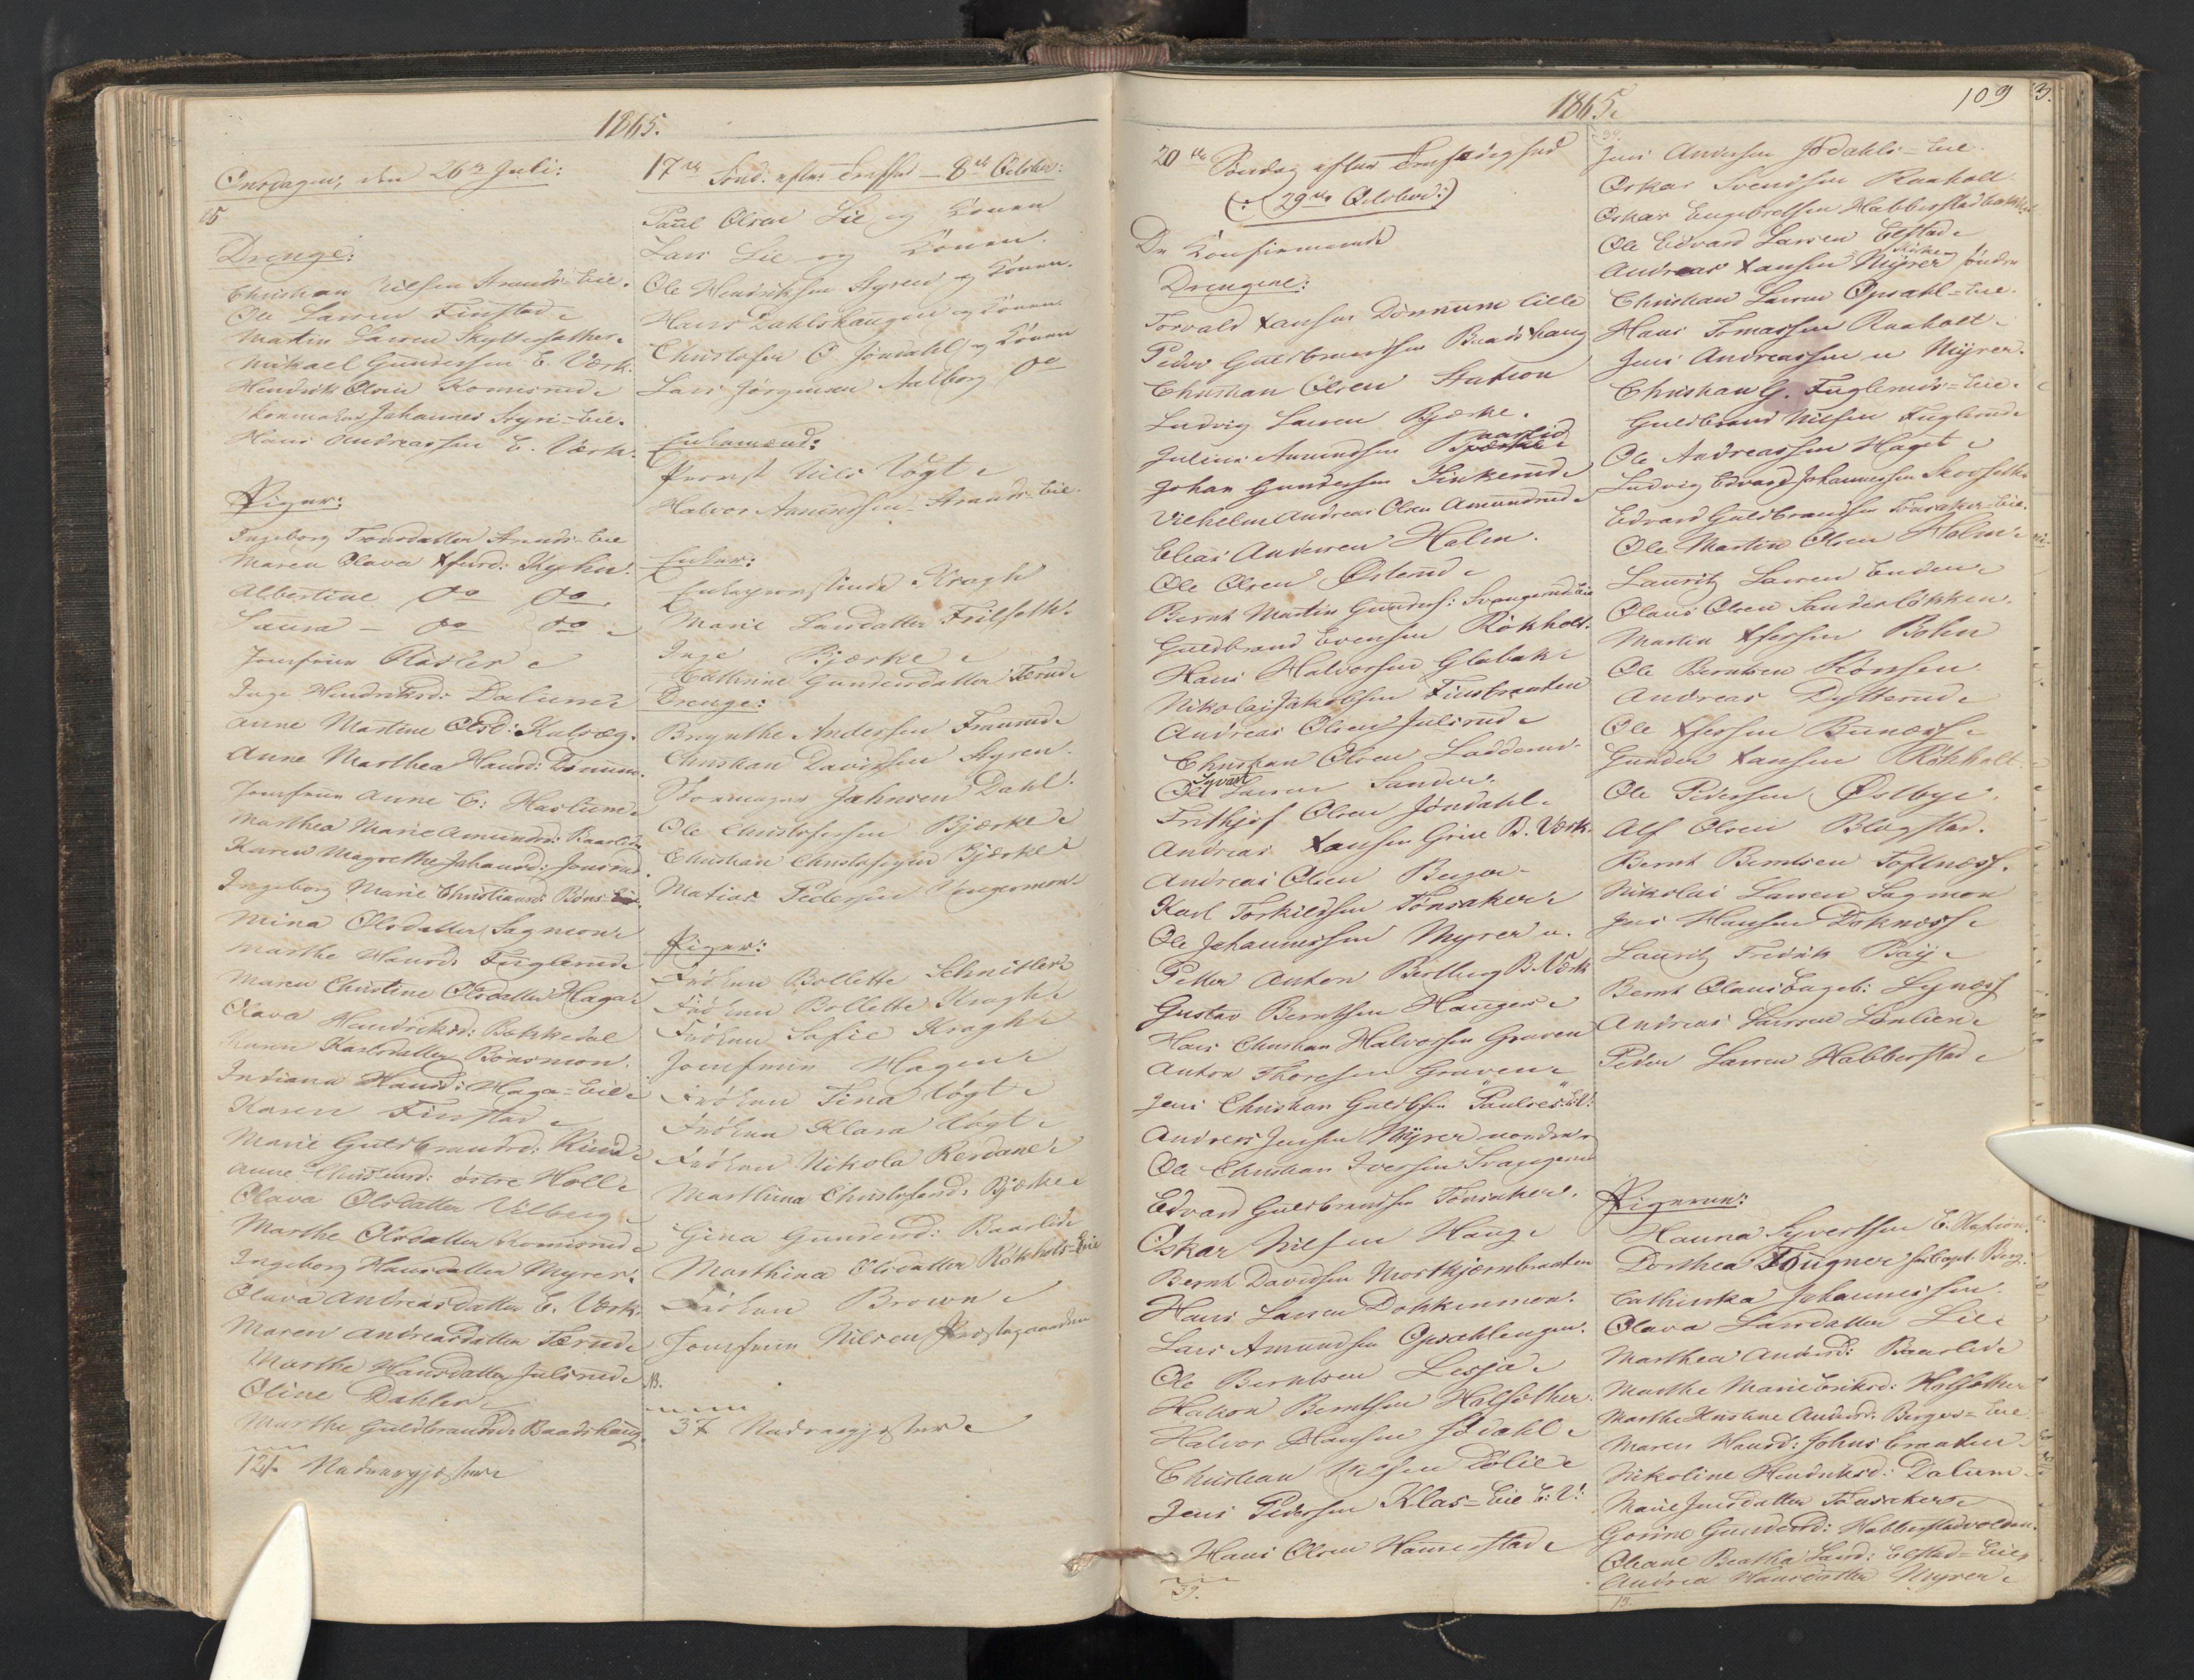 1865.
Onsdagen, den 26de Juli:
15
Drenge:
Christian Nilsen Strands-Eie.
Ole Larsen Finstad
Martin Larsen
Mikael Gundersen E. Værk.
Hendrik Olsen
Johannes Styri-Eie.
Hans Andreassen E. Værk.
Piger:
Ingeborg Tronsdatter Strands-Eie
Maren Olava Xfersd:
Albertine do do
Laura - do do
Jomfruen
Inge Hendriksd: Dalum
Anne Martine Olsd: Kalvæg.
Anne Marthea Hansd: Dønnum.
Jomfruen Anne C: Haslum
Marthea Marie Amundsd: Baarlid
Karen Magrethe Johansd: Jonsrud.
Ingeborg Marie Christiansd: Bøns-Eie.
Mina Olsdatter Sagmoen
Marthe Hansd: Fuglerud
Maren Christine Olsdatter Haga
Olava Hendriksd: Bakkedal
Karen Karlsdatter Bønsmoen.
Indiana Hansd: Haga-Eie
Karen Finstad
Marie Guldbrandsd: Ruud
Anne østre Holt
Olava Olsdatter Vilberg
Marthe Olsdatter
Ingeborg Hansdatter Myrer.
Olava Andreasdatter E. Værk.
Maren Andreasdatter Tærud
Marthe Hansdatter Julsrud
Oline Dahler
Marthe Guldbrandsd: Baadshaug.
121. Nadvergjester
17de Sønd: efter Treffhed - 8de October:
Paul Olsen Lie og Konen
Lars Lie og Konen.
Ole Hendriksen Styren og Konen.
Hans Dahlshaugen og Konen.
Christofer O. Jøndahl og Konen
Lars Jørgensen Aalborg do
Enkemænd:
Provst Nils Vogt
Halvor Amundsen Strands-Eie.
Enker:
Enkeprovstinde Kragh
Marie Larsdatter
Inge Bjørke
Cathrine Gundersdatter Tærud
Drenge:
Brynthe Andersen
Christian Davidsen Styren.
Skomager Jahnsen Dahl.
Ole Christofersen Bjørke
Christian Christofersen Bjørke
Matias Pedersen
Piger:
Frøken Bollette Schnitler
Frøken Bollette Kragh
Frøken Sofie Kragh
Jomfruen Hagen
Frøken Tina Vogt
Frøken Klara Vogt
Frøken Nikola
Marthina Christofersd: Bjørke
Gina Gundersd: Baarlid
Marthina Olsdatter Røkholt-Eie
Frøken Brown
Jomfruen Nilsen Præstegaarden
13.
37 Nadvergjester
1865.
109
3.
20de Søndag efter Trefoldighed
(: 29de October:)
De Konfirmerede
Drengene:
Torvald Hansen Dønnum lille
Peder Guldbrandsen Baadshaug
Christian Olsen Station
Ludvig Larsen Bjørke.
Julius Amundsen Baarlid
Johan Gundersen Sinkerud
Vilhelm Andreas Olsen Amundrud
Elias Andersen Holm.
Ole Olsen Østerud
Bernt Martin Gunders: Svangerud-Eie
Guldbrand Evensen Røkholt.
Hans Halvorsen Globak
Nikolai Jakobsen Finsbraaten
Andreas Olsen Julsrud
Christian Olsen Ladderud.
Syvert Larsen Sander.
Frithjof Olsen Jøndahl
Andreas Hansen Grise B. Værk.
Andreas Olsen Berger
Karl Torkildsen Tønsaker
Ole Johannessen Myrer n.
Petter Anton Bertberg B. Værk
Gustav Berntsen Hauger
Hans Christian Halvorsen Graven
Anton Thoresen Graven
Jens Christian Guldbsen "Paulses" E.V:
Andreas Jensen Myrer nordre
Ole Christian Iversen Svangerud
Edvard Guldbrandsen Tønsaker.
Oskar Nilsen Haug
Bernt Davidsen Mortkjernbraaten
Hans Larsen Dokkenmoen.
Lars Amundsen Opsahlengen.
Ole Berntsen Lesja
Hakon Berntsen Holsæther.
Halvor Hansen Jødahl
Christian Nilsen Dølie
Jens Pedersen Klas-Eie E: V:
Hans Olsen Hammerstad
39.
Jens Andersen Jødahls-Eie.
Oskar Svendsen Raaholt
Oskar Engebretsen Habberstadbakken
Ole Edvard Larsen Elstad
Andreas Hansen Myrer søndre
Christian Larsen Opsahl-Eie.
Hans Tomassen Raaholt
Jens Andreassen n Myrer.
Christian G. Fuglerud-Eie
Guldbrand Nilsen Fuglerud
Ole Andreassen Haget
Ludvig Edvard Johannessen
Edvard Guldbrandsen Tønsaker-Eie.
Ole Martin Olsen Holm
Lauritz Larsen Enden
Olaus Olsen Sanderløkken.
Martin Xfersen Bohn
Ole Berntsen
Andreas Dytterud
Ole Xfersen Bunæss
Gunder Hansen Røkholt
Ole Pedersen Østby
Alf Olsen Blogstad.
Bernt Berntsen Toftnæss.
Nikolai Larsen Sagmoen
Jens Hansen Doknæss
Lauritz Fredrik Bay
Bernt Olaus Engeb: Lynæss
Andreas Larsen Lønlien
Peder Larsen Habberstad
Pigerne:
Hanna Syvertsen E. Station.
Dorthea Fougner hos Capt. Berg.
Cathinka Johannessen.
Olava Larsdatter Lie
Marthea Andersd: Baarlid
Marthe Marie Eriksd: Holsæther
Marthe Kristine Andersd: Berger-Eie
Maren Hansd: Johnsbraaten
Nikoline Hendriksd: Dalum
Marie Jensdatter Tønsaker
Gorine Gundersd: Habberstadvolden.
Oleane Beatha Larsd: Elstad-Eie
Andrea Hansdatter Myrer
13.